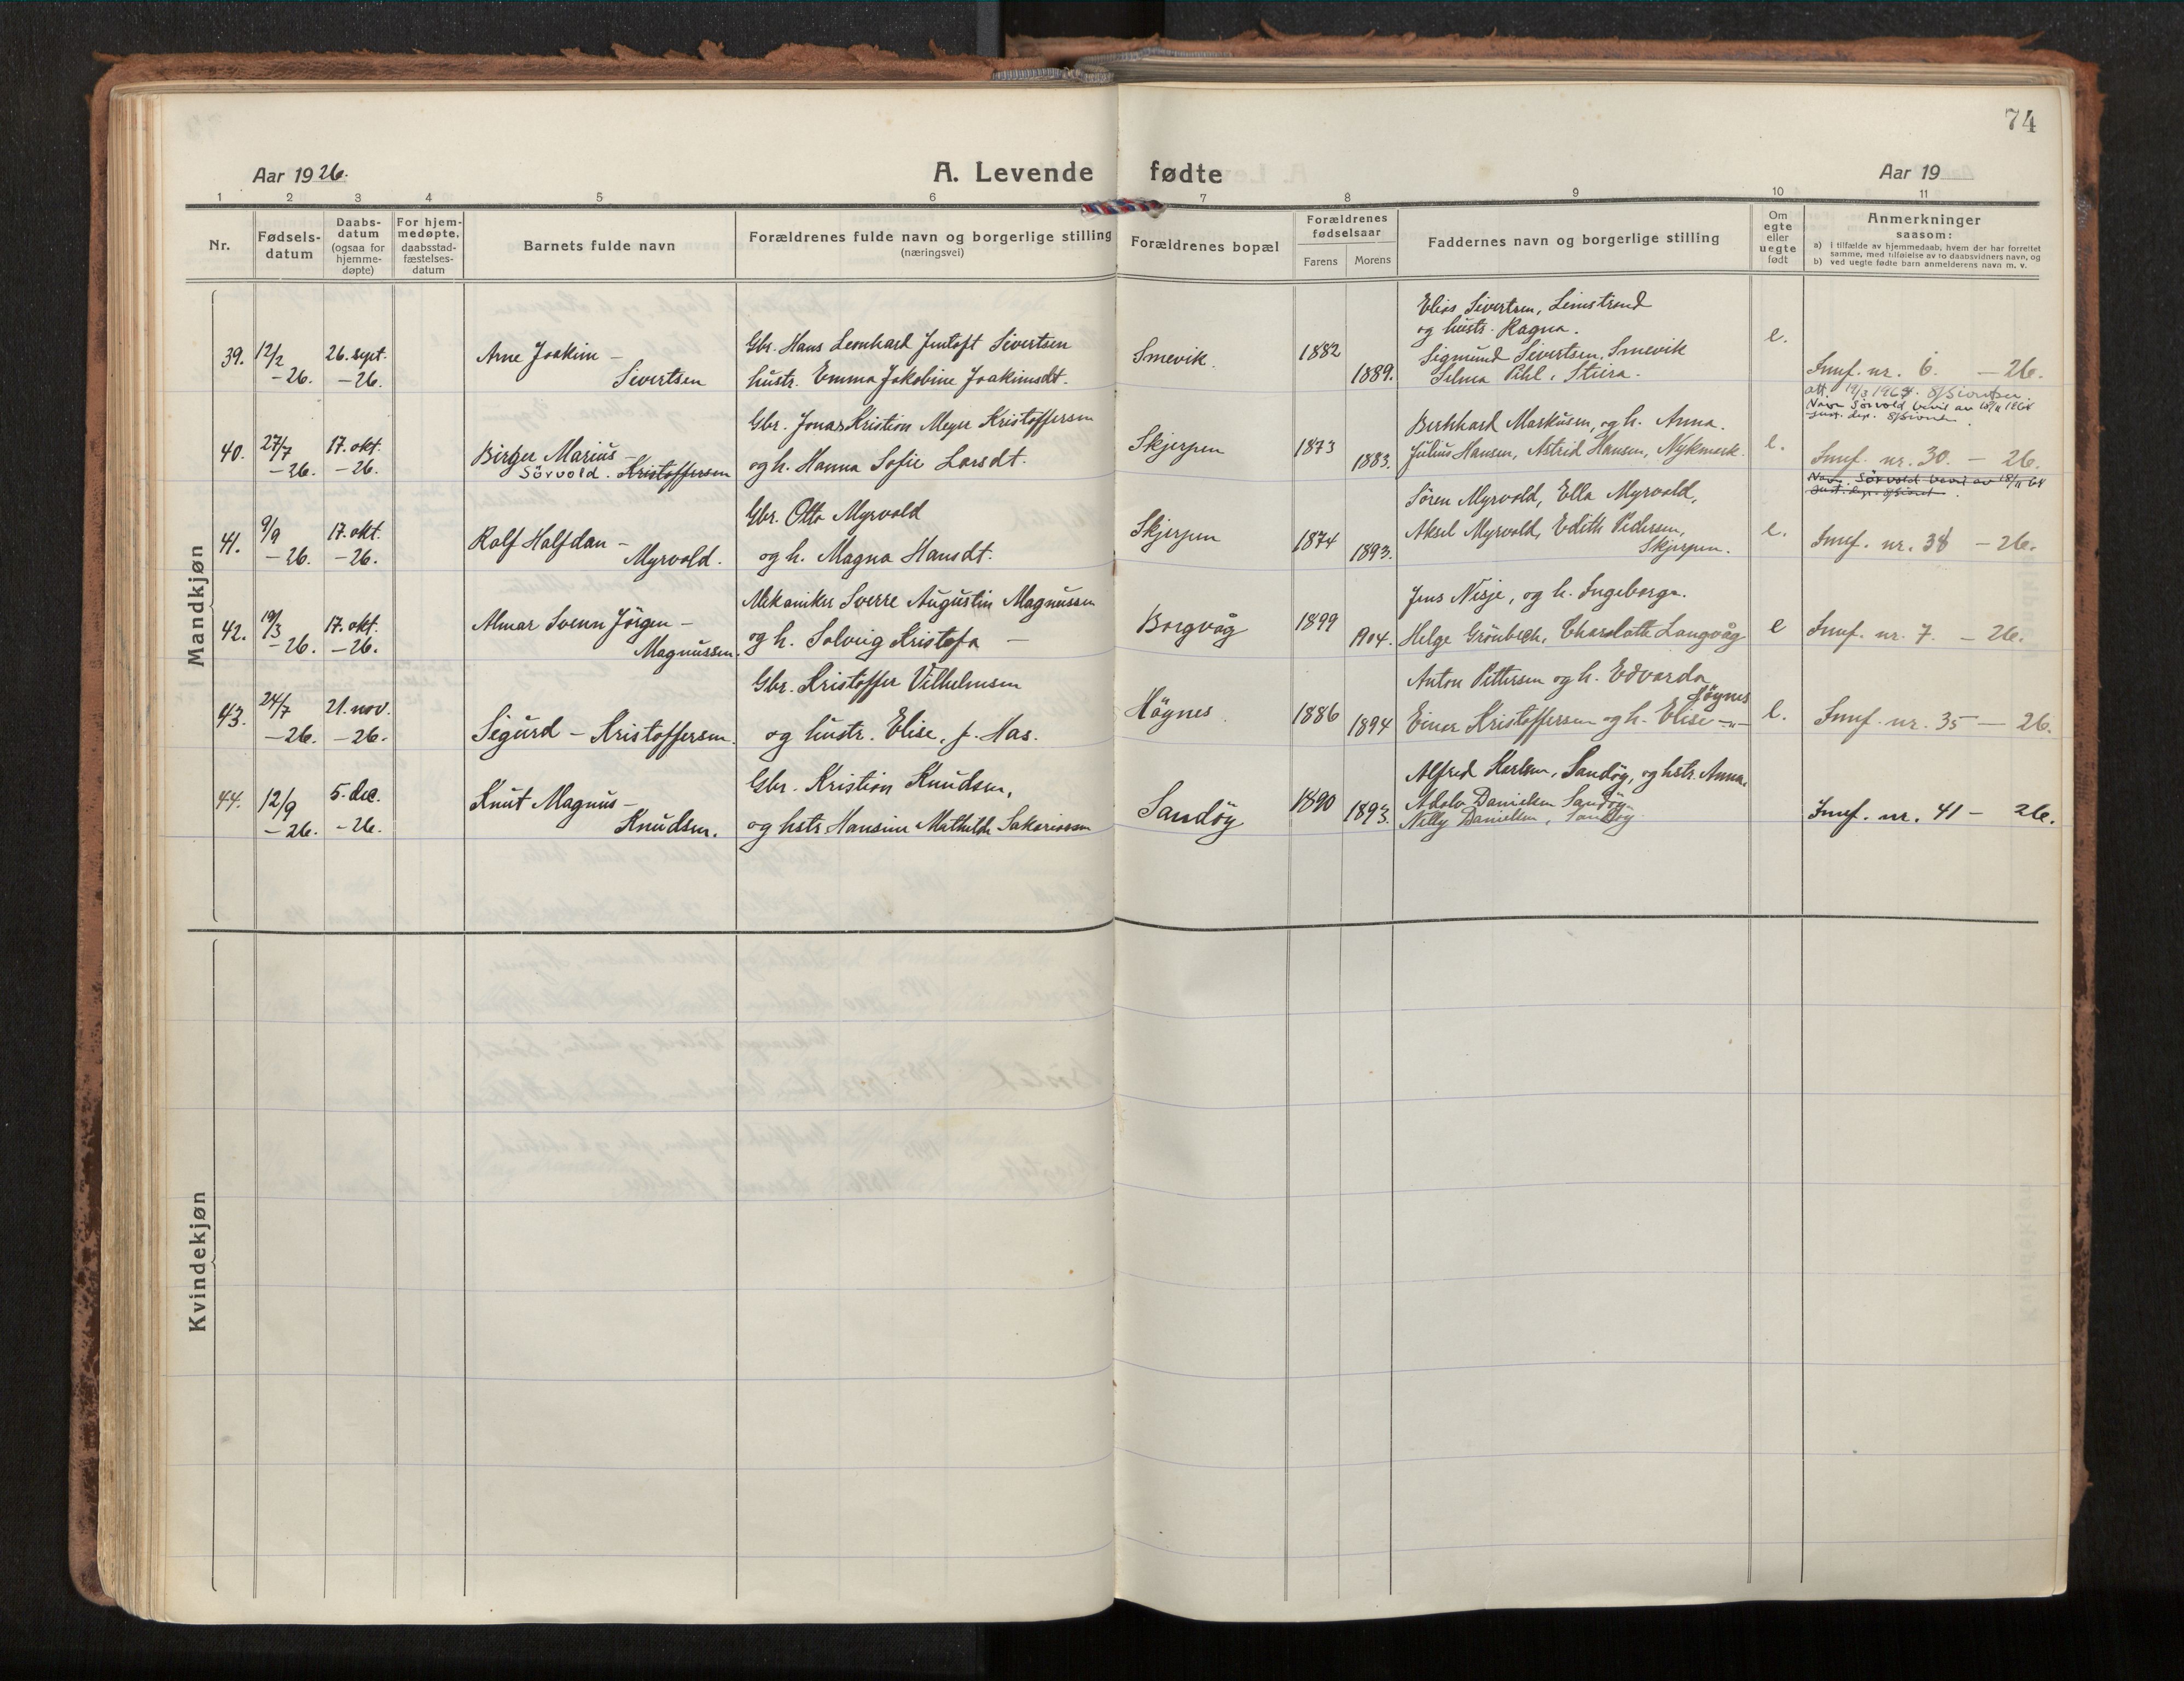 74
Aar 1926.
A. Levende fødte
Aar 19
1 2 3 4 5 6 7 8 9 10 11
Nr.
Fødsels-
datum
Daabs-
datum
(ogsaa for
hjemme-
døpte)
For hjem-
medøpte,
daabsstad-
fæstelses-
datum
Barnets fulde navn
Forældrenes fulde navn og borgerlige stilling
(næringsvei)
Forældrenes bopæl
Forældrenes
fødselsaar
Farens Morens
Faddernes navn og borgerlige stilling
Om
egte
eller
uegte
født
Anmerkninger
saasom:
a) i tilfælde av hjemmedaab, hvem der har forrettet
samme, med tilføielse av to daabsvidners navn, og
b) ved uegte fødte barn anmelderens navn m. v.
Mandkjøn
39. 12/2 -26. 26. sept. -26.
Arne Joakim -
Sivertsen
Gbr. Hans Leonhard Sivertsen
hustr. Emma Jakobine Joakimsdt.
Smevik.
1882
1889.
Elias Sivertsen,
og hustr. Ragna.
Sigmund Sivertsen, Smevik
Selma Pihl, Steira.
e.
Innf. nr. 6. - 26.
40. 27/7 -26. 17. okt. -26.
Birger Marius -
Sörvold. Kristoffersen
Gbr. Jonas Kristian Meyer Kristoffersen
og h. Hanna Sofie Larsdt.
Skjerpen
1873
1883.
Bernhard Markusen, og h. Anna.
Julius Hansen, Astrid Hansen, Nykmark.
e.
att. 19/3 1965.
Navn Sörvold bevil av 18/11 1964
Just. dep.
Innf. nr. 30. - 26.
Navn Sörvold bevil av 18/11 64
Just. dep.
41. 9/9 -26. 17. okt. -26.
Rolf Halfdan -
Myrvold.
Gbr. Otto Myrvold
og h. Magna Hansdt.
Skjerpen
1874
1893.
Sören Myrvold, Ella Myrvold,
Aksel Myrvold, Edith Pedersen,
Skjerpen.
e.
Innf. nr. 38 - 26.
42. 19/3 -26. 17. okt. -26.
Almar Svenn Jörgen -
Magnussen.
Mekaniker Sverre Augustin Magnussen
og h. Solveig Kristofa -
Borgvåg
1899
1904.
Jens Nisje, og h. Ingeborga.
Helge Grönbech, Charlotte Langvåg
e
Innf. nr. 7. - 26.
43. 24/7 -26. 21. nov. -26.
Sigurd - Kristoffersen.
Gbr. Kristoffer Vilhelmsen
og hustr. Elise, f. Has.
Högnes.
1886
1894
Anton Pettersen og h. Edvarda,
Högnes
Einar Kristoffersen og h. Elise -"-
e.
Innf. nr. 35 - 26.
44. 12/9 -26. 5. dec. -26.
Knut Magnus -
Knudsen.
Gbr. Kristian Knudsen,
og hstr. Hansine Mathilde Sakariassen
Sandöy
1890
1893.
Alfred Karlsen, Sandöy, og hstr. Anna.
Adolv Danielsen Sandöy.
Nelly Danielsen, Sandöy
Innf. nr. 41 - 26.
Kvindekjøn